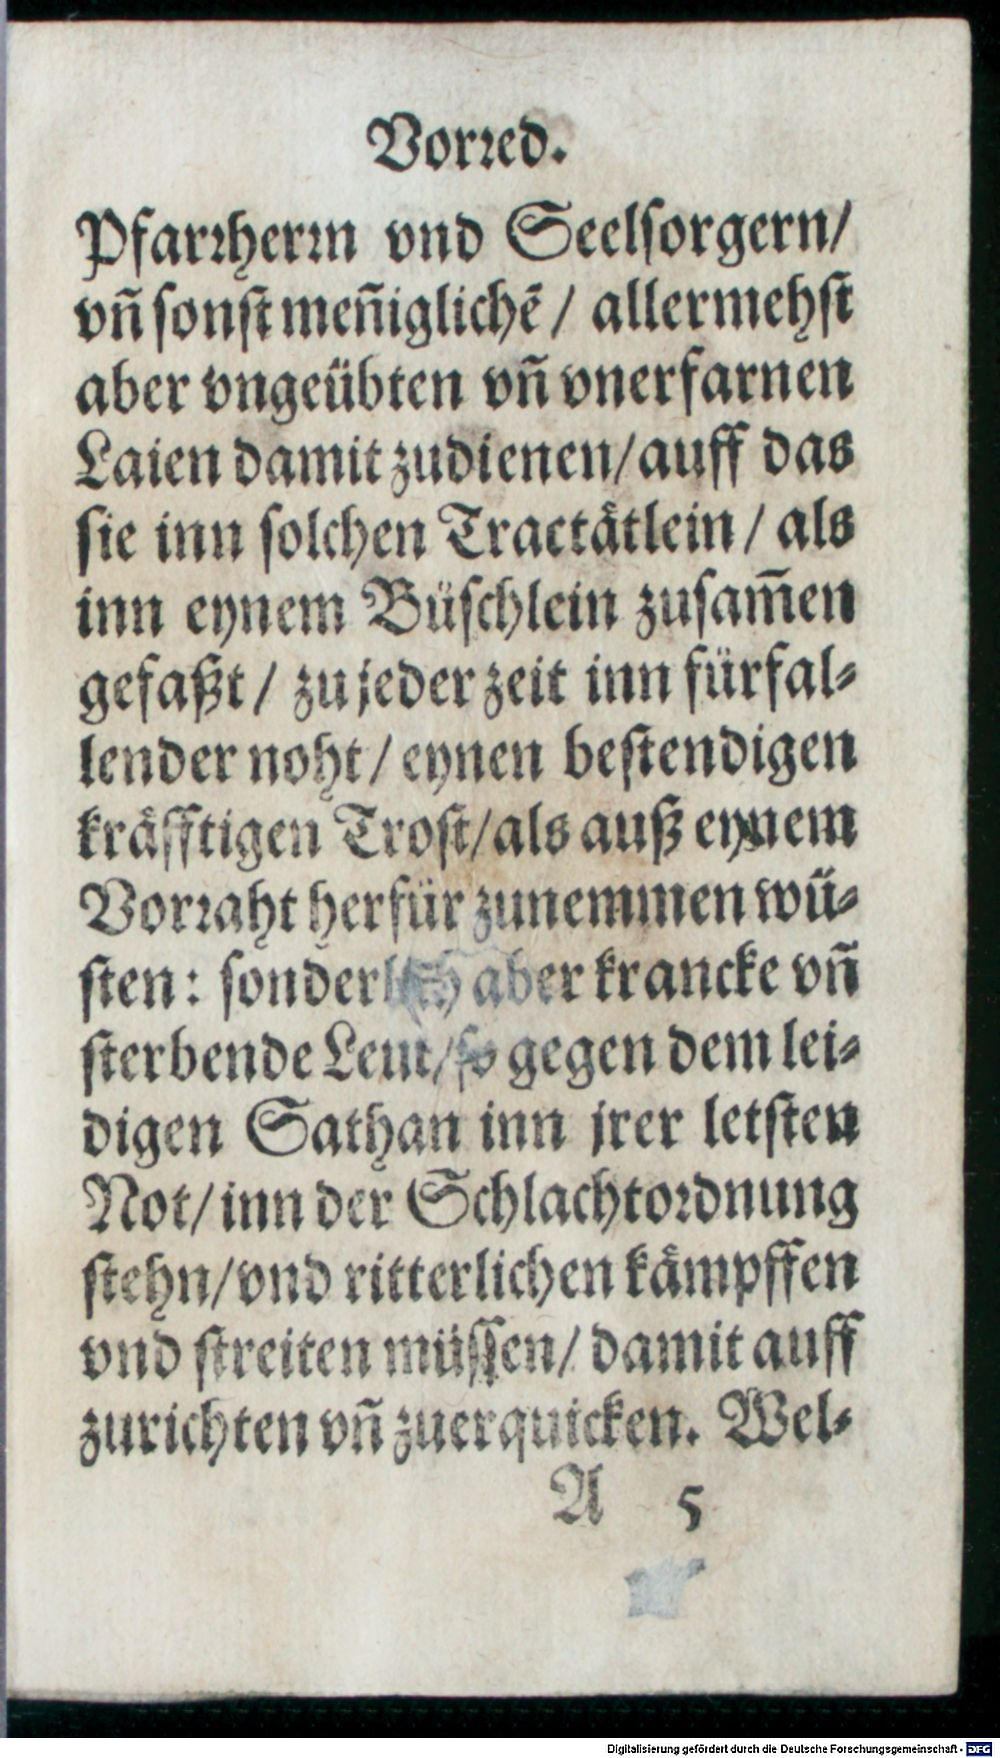 Vorꝛed.
Pfarꝛherꝛn vnd Seelſorgern/
vñ ſonſt meñiglichẽ / allermehſt
aber vngeübten vñ vnerfarnen
Laien damit zudienen/auff das
ſie inn ſolchen Tractaͤtlein / als
inn eynem Büſchlein zuſam̃en
gefaßt / zu jeder zeit inn fürfal⸗
lender noht / eynen beſtendigen
kraͤfftigen Troſt/als auß eynem
Vorꝛaht herfür zunemmen wü⸗
ſten: ſonderlich aber krancke vñ
ſterbende Leut/ſo gegen dem lei⸗
digen Sathan inn jrer letſten
Not/inn der Schlachtoꝛdnung
ſtehn/vnd ritterlichen kaͤmpffen
vnd ſtreiten müſſen/ damit auff
zurichten vñ zuerquicken. Wel⸗
A 5
Digitalisierung gefördert durch die Deutsche Forschungsgemeinschaft - DFG